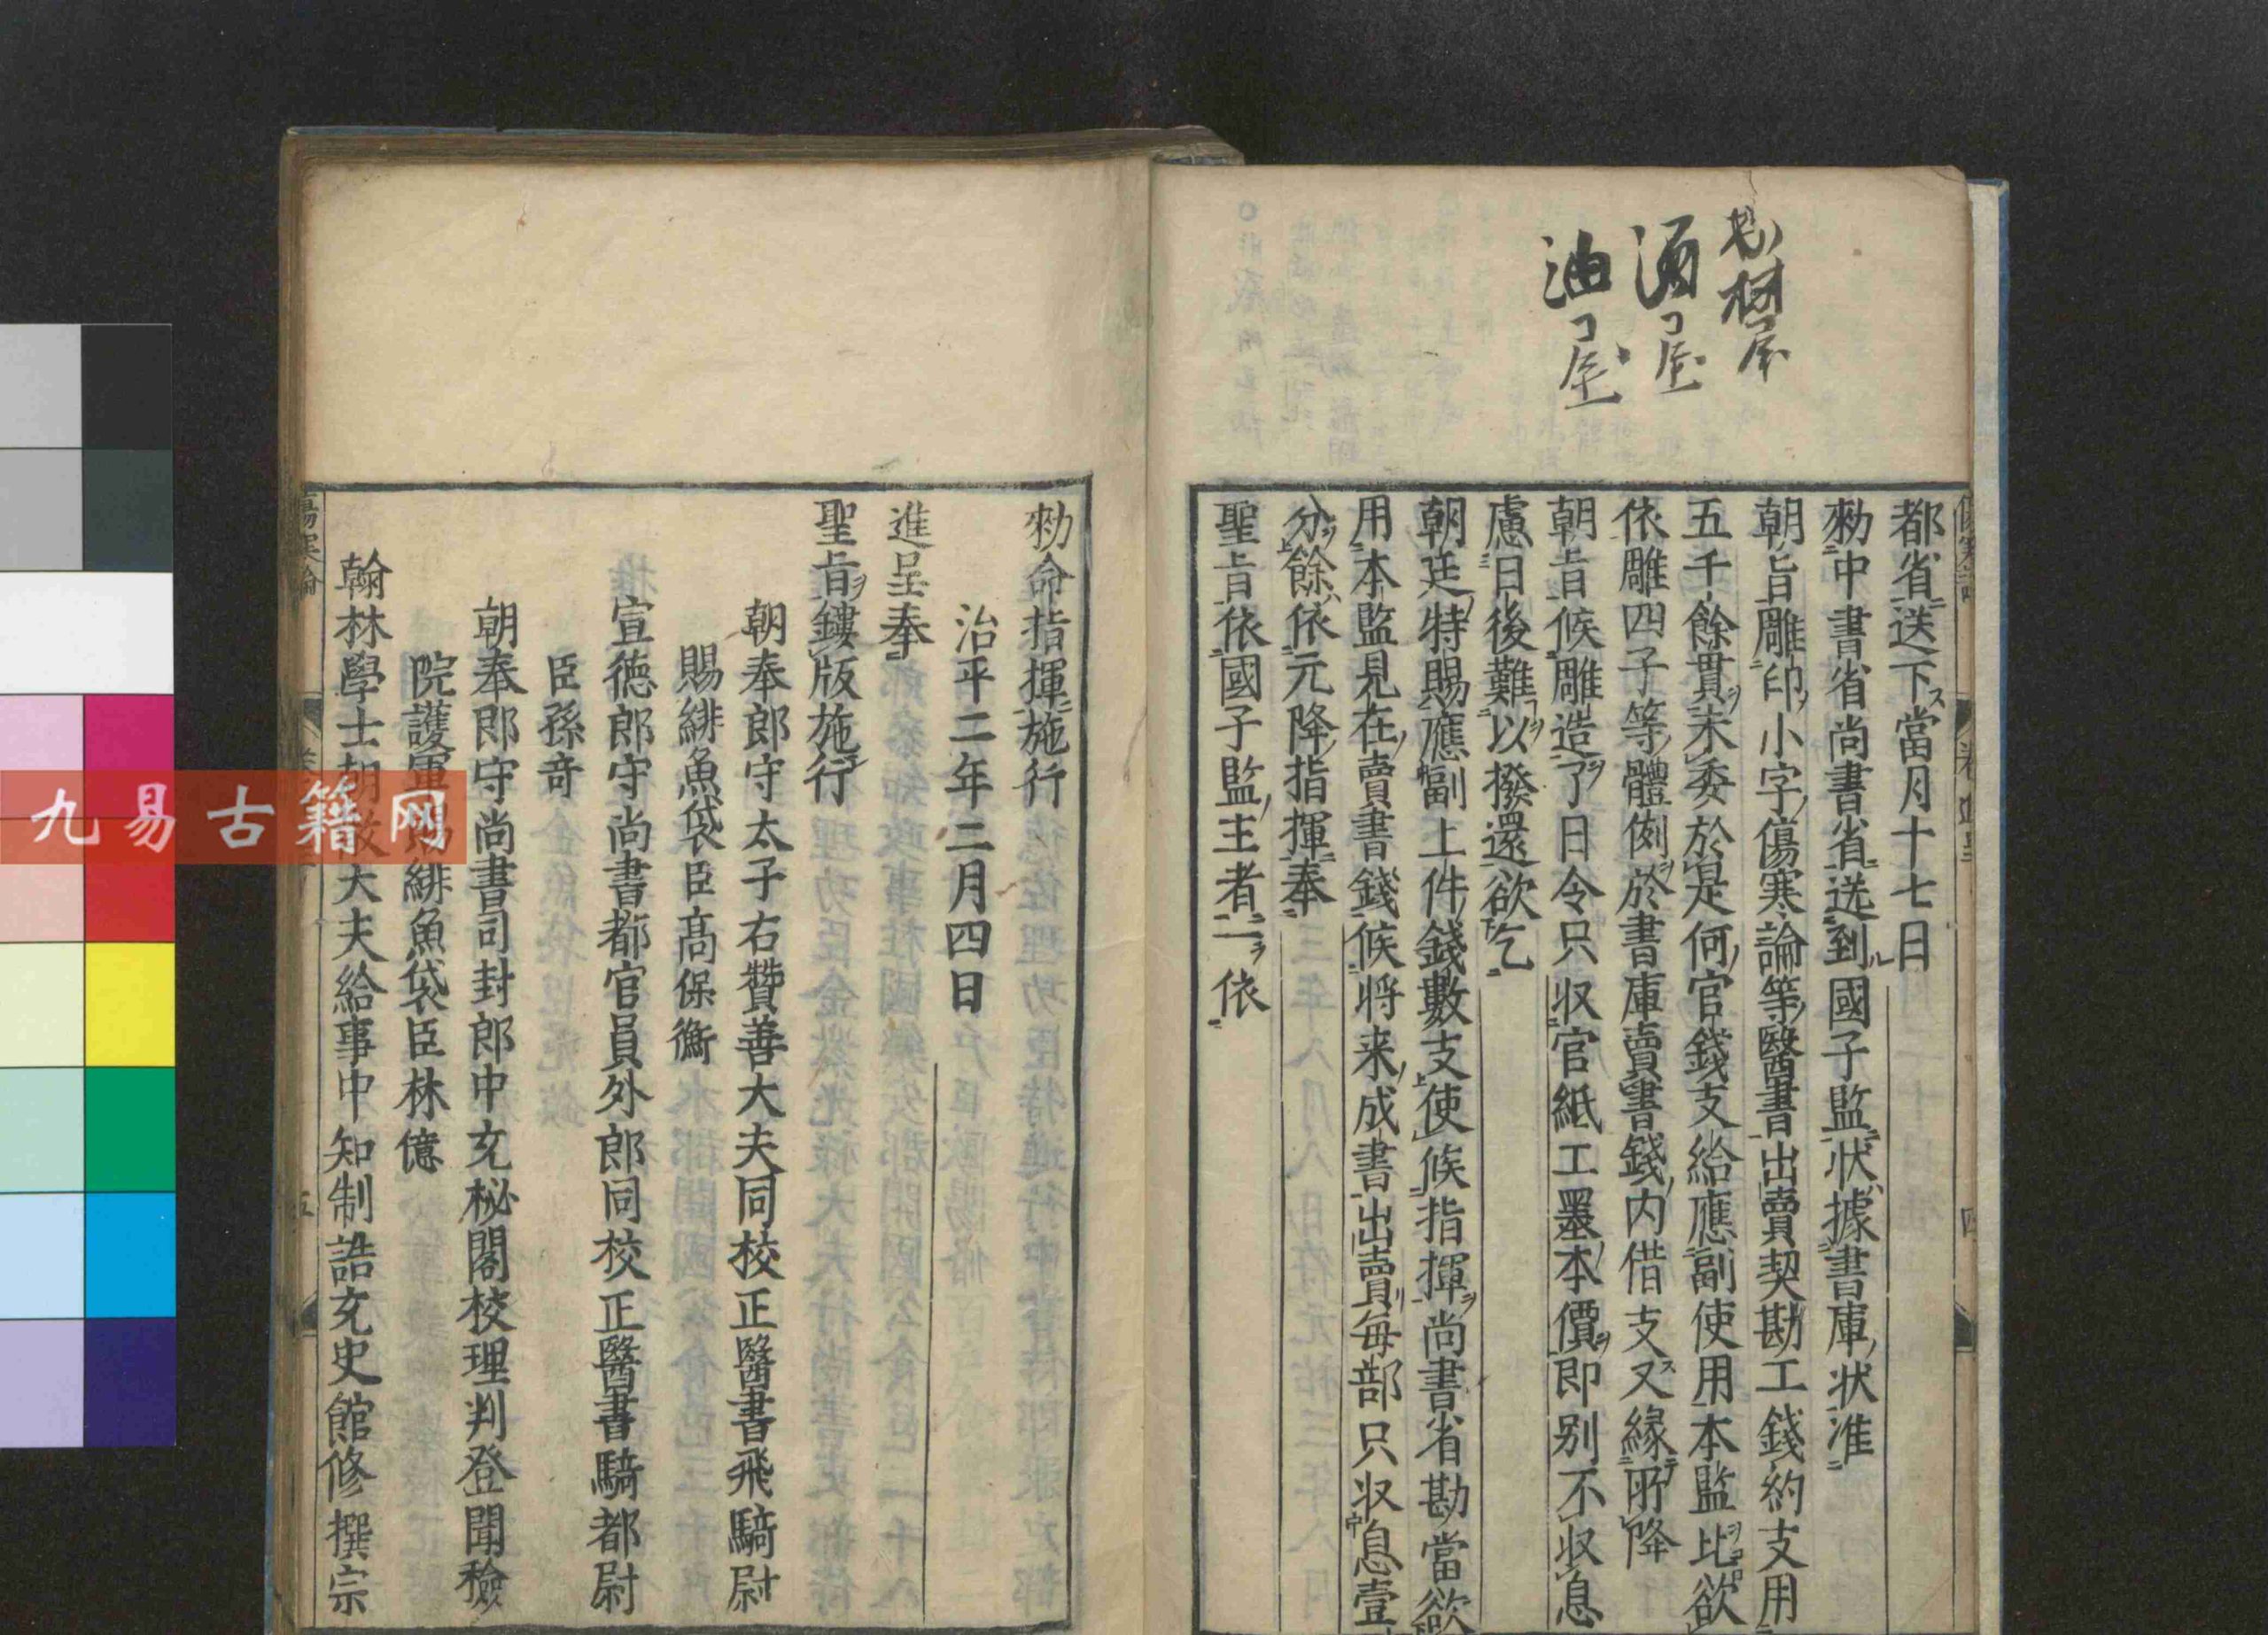 酒コ屋
油コ屋
都省送下當月十七日
勑中書省尚書省送到國子監狀據書庫狀准
朝旨雕印小字傷寒論等醫書出賣契勘工錢約支用
五千餘貫未委於是何官錢支給應副使用本監比欲
依雕四子等體例於書庫賣書錢內借支又緣所降
朝旨候雕造了日令只收官紙工墨本價即別不收息
慮日後難以撥還欲乞
朝廷特賜應副上件錢數支使候指揮尚書省勘當欲
用本監見在賣書錢候將来成書出賣每部只收息壹
分餘依元降指揮奉
聖旨依國子監主者一依
勑命指揮施行
治平二年二月四日
進呈奉
聖旨鏤版施行
朝奉郎守太子右贊善大夫同校正醫書飛騎尉
賜緋魚袋臣高保衡
宣德郎守尚書都官員外郎同校正醫書騎都尉
臣孫奇
朝奉郎守尚書司封郎中充秘閣校理判登聞檢
院護軍賜緋魚袋臣林億
翰林學士朝散大夫給事中知制誥充史館修撰宗
傷寒論
五
四
九易古籍网